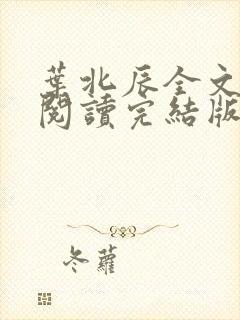 葉北辰全文
閱讀完結版
冬蘿